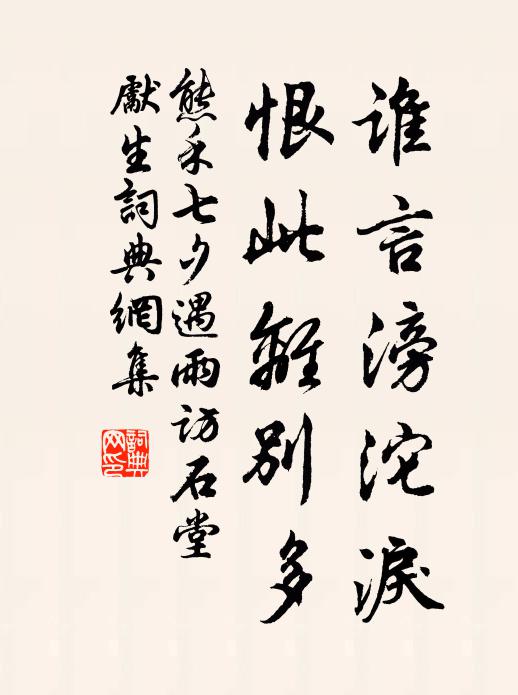 谁言滂沱淚
恨此離别多
熊禾七夕遇雨訪石堂
獻生詞典網集
詞典
网印